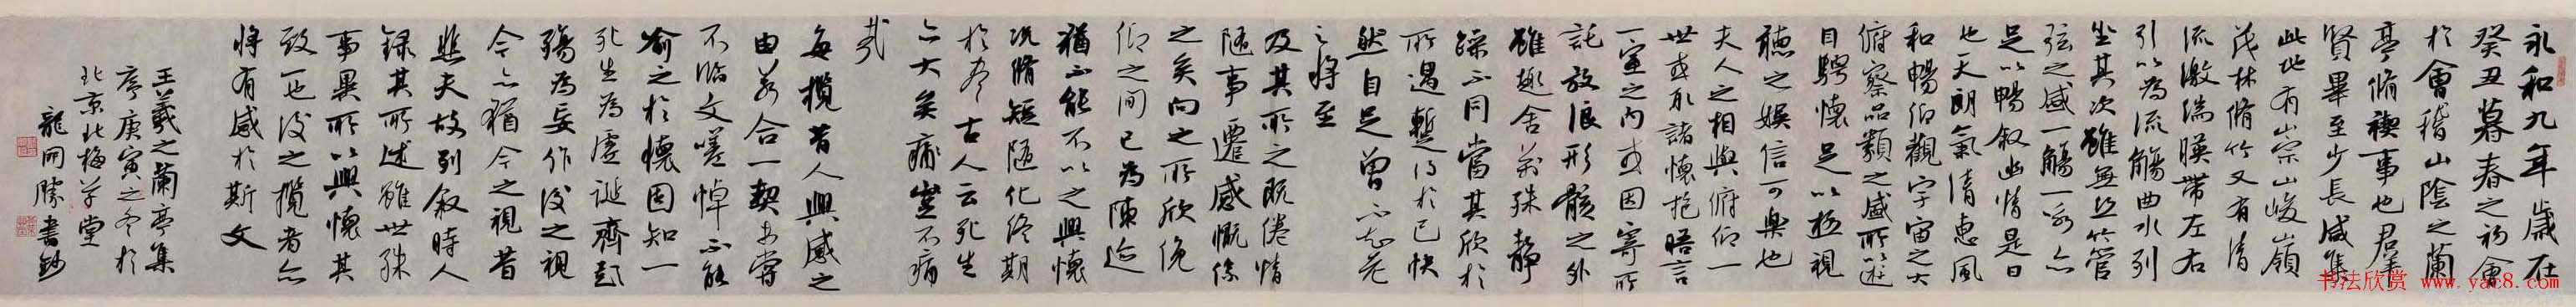 永和九年歲在
癸丑暮春之初會
於會稽山陰之蘭
亭脩禊事也群
賢畢至少長咸集
此地有崇山峻嶺
茂林脩竹又有清
流激湍暎帶左右
引以為流觴曲水列
坐其次雖無絲竹管
弦之盛一觴一詠亦
足以暢敘幽情是日
也天朗氣清惠風
和暢仰觀宇宙之大
俯察品類之盛所以遊
目騁懷足以極視
聽之娛信可樂也
夫人之相與俯仰一
世或取諸懷抱晤言
一室之內或因寄所
託放浪形骸之外
雖趣舍萬殊靜
躁不同當其欣於
所遇暫得於己快
然自足曾不知老
之將至
及其所之既倦情
隨事遷感慨係
之矣向之所欣俛
仰之間已為陳迹
猶不能不以之興懷
況脩短隨化終期
於盡古人云死生
亦大矣痛豈不痛
哉
每攬昔人興感之
由若合一契未嘗
不臨文嗟悼不能
喻之於懷固知一
死生為虛誕齊彭
殤為妄作後之視
今亦猶今之視昔
悲夫故列敘時人
錄其所述雖世殊
事異所以興懷其
致一也後之攬者亦
將有感於斯文
王羲之蘭亭集
序庚寅之冬於
北京北梅草堂
龍開勝書鈔
书法欣赏 www.yac8.com